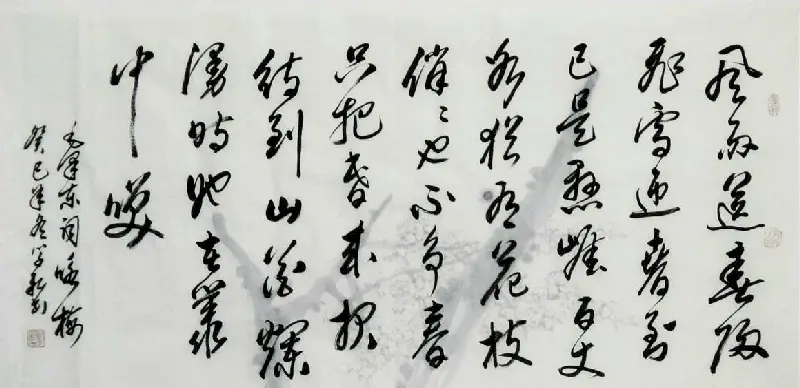 风雨送春归
飛雪迎春到
已是悬崖百丈
冰犹有花枝
俏〻也不争春
只把春来报
待到山花爛
漫时她在叢
中笑
毛泽东词咏梅
癸巳年冬